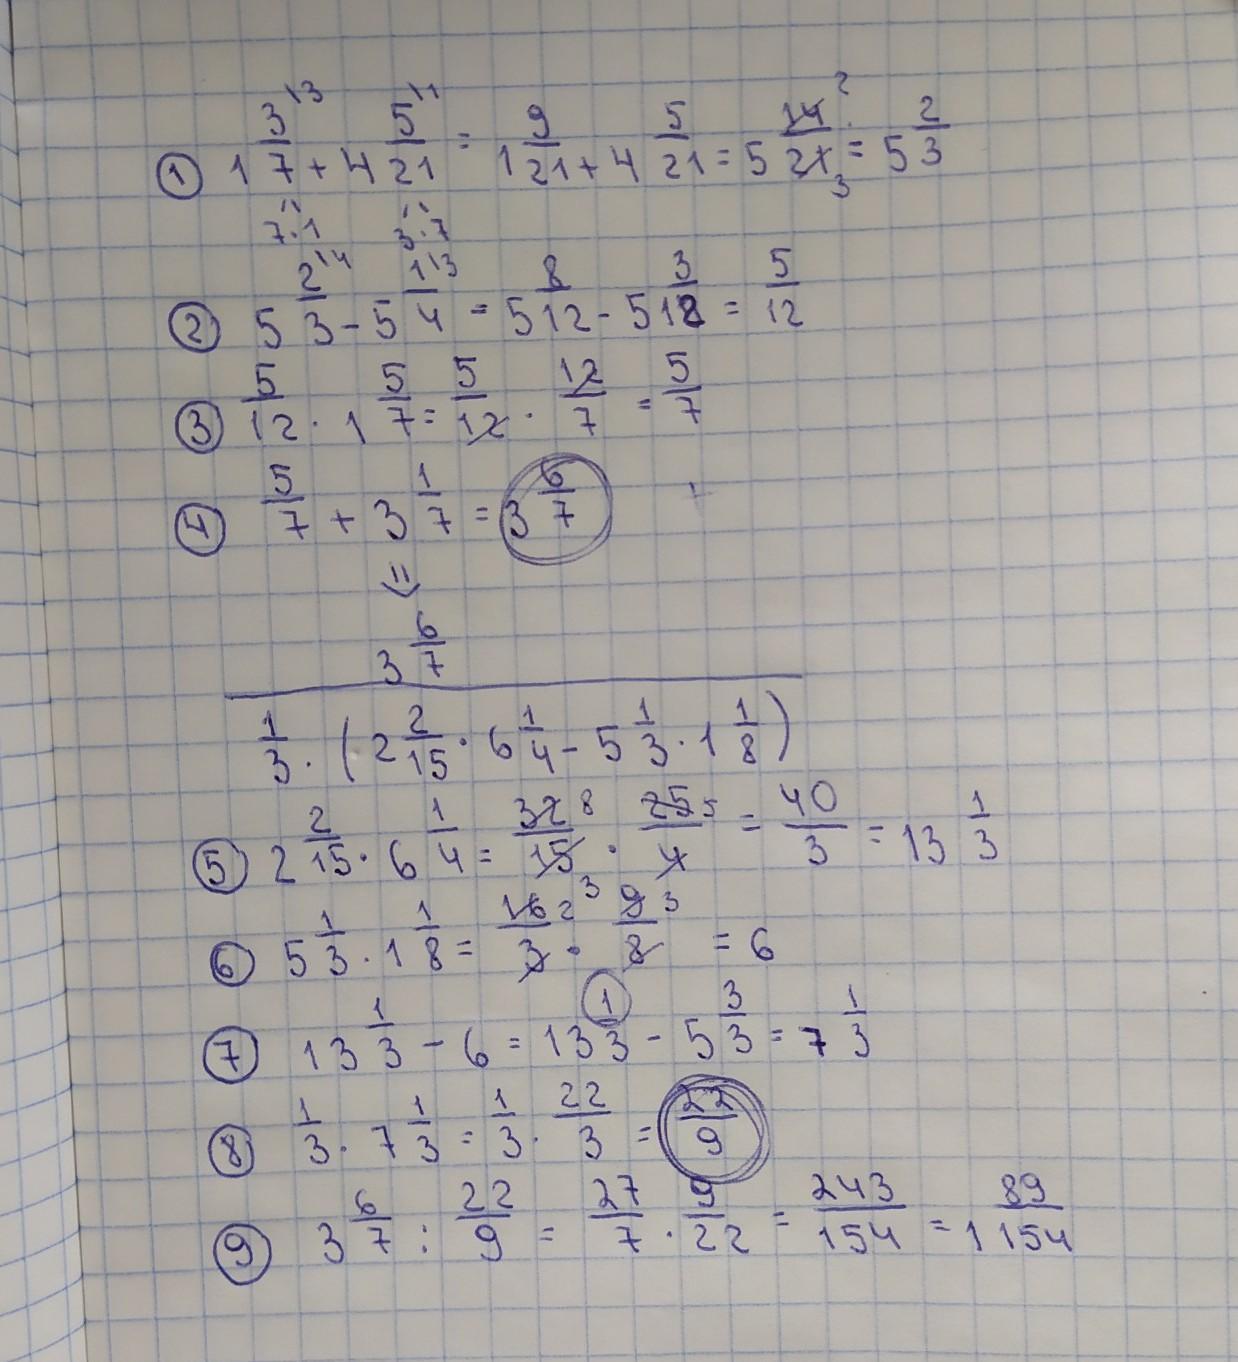 ① 1 3/7 \3 + 4 5/21 \1 = 1 9/21 + 4 5/21 = 5 14/21 2 3 = 5 2/3
7·1 3·7
② 5 2/3 \4 - 5 1/4 \3 = 5 8/12 - 5 3/12 = 5/12
③ 5/12 · 1 5/7 = 5/12 · 12/7 = 5/7
④ 5/7 + 3 1/7 = 3 6/7
⇓
3 6/7
1/3 · (2 2/15 · 6 1/4 - 5 1/3 · 1 1/8)
⑤ 2 2/15 · 6 1/4 = 32/15 8 3 · 25/4 5 = 40/3 = 13 1/3
⑥ 5 1/3 · 1 1/8 = 16/3 2 · 9/8 3 = 6
⑦ 13 1/3 - 6 = 13 1/3 - 5 3/3 = 7 1/3
⑧ 1/3 · 7 1/3 = 1/3 · 22/3 = 22/9
⑨ 3 6/7 : 22/9 = 27/7 · 9/22 = 243/154 = 1 89/154